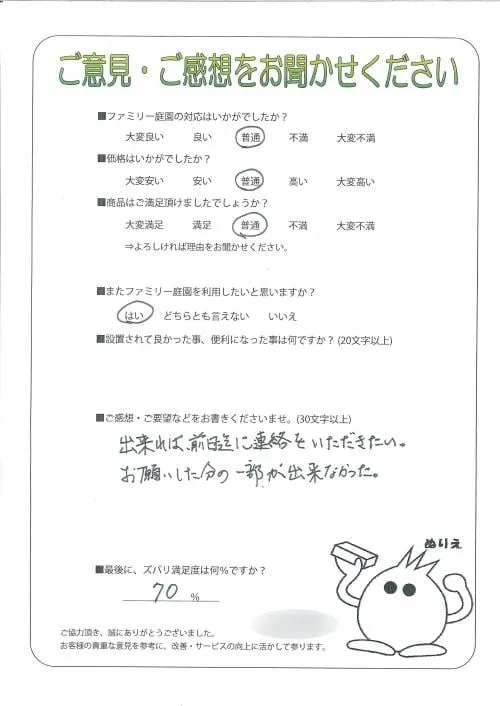 ご意見・ご感想をお聞かせください
■ファミリー庭園の対応はいかがでしたか？
大変良い 良い 普通 不満 大変不満
■価格はいかがでしたか？
大変安い 安い 普通 高い 大変高い
■商品はご満足頂けましたでしょうか？
大変満足 満足 普通 不満 大変不満
⇒よろしければ理由をお聞かせください。
■またファミリー庭園を利用したいと思いますか？
はい どちらとも言えない いいえ
■設置されて良かった事、便利になった事は何ですか？(20文字以上)
■ご感想・ご要望などをお書きくださいませ。(30文字以上)
出来れば、前日迄に連絡をいただきたい。
お願いした分の一部が出来なかった。
ぬりえ
■最後に、ズバリ満足度は何％ですか？
70 ％
ご協力頂き、誠にありがとうございました。
お客様の貴重な意見を参考に、改善・サービスの向上に活かして参ります。